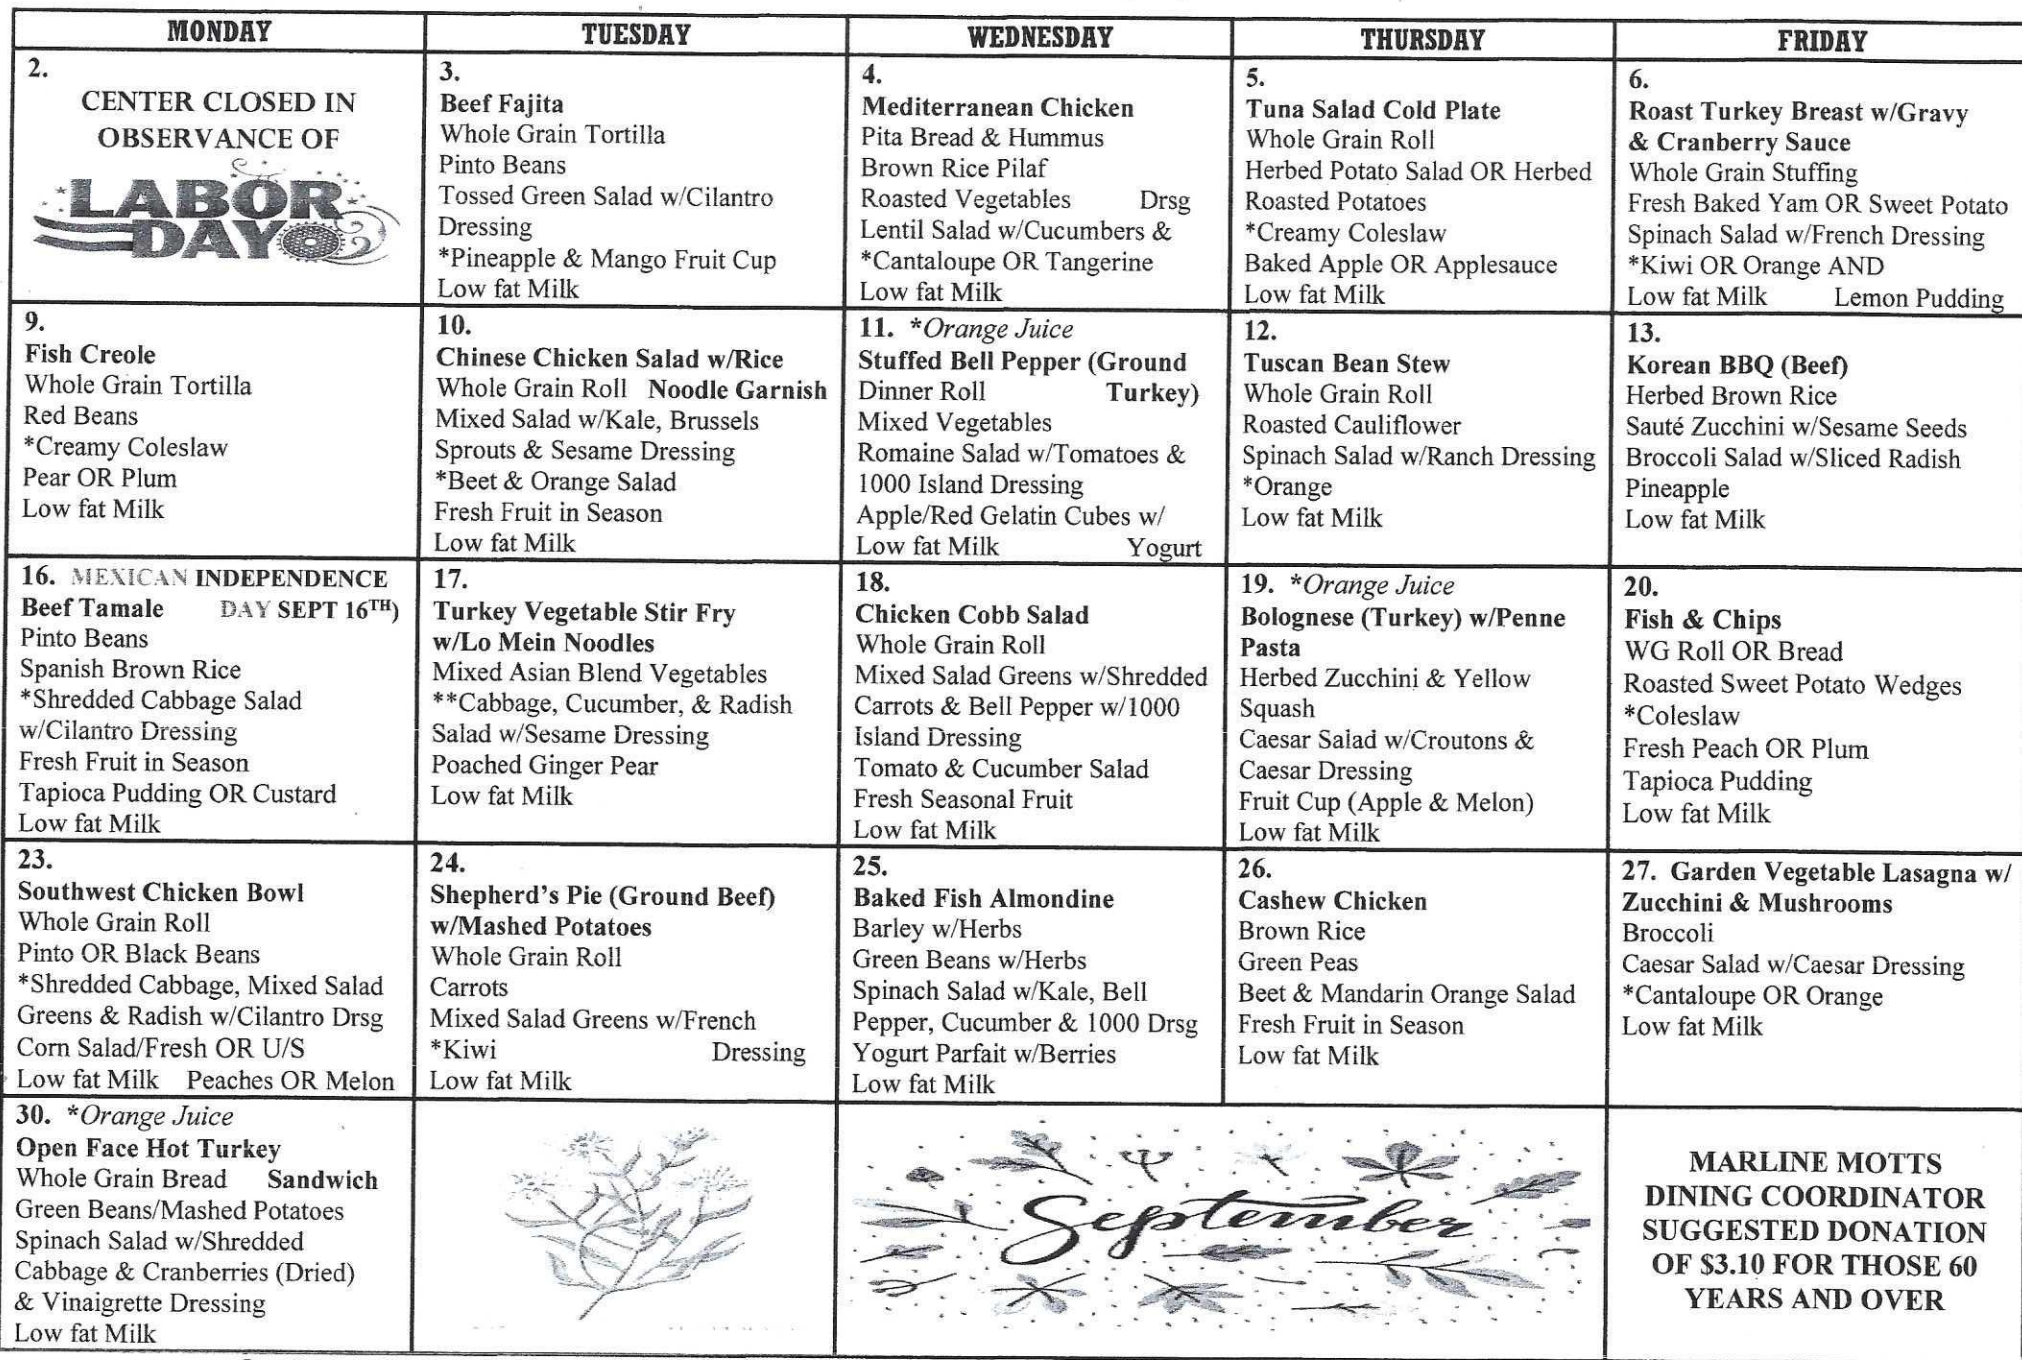 MONDAY TUESDAY WEDNESDAY THURSDAY FRIDAY
2.
CENTER CLOSED IN
OBSERVANCE OF
LABOR
DAY
3.
Beef Fajita
Whole Grain Tortilla
Pinto Beans
Tossed Green Salad w/Cilantro
Dressing
*Pineapple & Mango Fruit Cup
Low fat Milk
4.
Mediterranean Chicken
Pita Bread & Hummus
Brown Rice Pilaf
Roasted Vegetables Drsg
Lentil Salad w/Cucumbers &
*Cantaloupe OR Tangerine
Low fat Milk
5.
Tuna Salad Cold Plate
Whole Grain Roll
Herbed Potato Salad OR Herbed
Roasted Potatoes
*Creamy Coleslaw
Baked Apple OR Applesauce
Low fat Milk
6.
Roast Turkey Breast w/Gravy
& Cranberry Sauce
Whole Grain Stuffing
Fresh Baked Yam OR Sweet Potato
Spinach Salad w/French Dressing
*Kiwi OR Orange AND
Low fat Milk Lemon Pudding
9.
Fish Creole
Whole Grain Tortilla
Red Beans
*Creamy Coleslaw
Pear OR Plum
Low fat Milk
10.
Chinese Chicken Salad w/Rice
Whole Grain Roll Noodle Garnish
Mixed Salad w/Kale, Brussels
Sprouts & Sesame Dressing
*Beet & Orange Salad
Fresh Fruit in Season
Low fat Milk
11. *Orange Juice
Stuffed Bell Pepper (Ground
Dinner Roll Turkey)
Mixed Vegetables
Romaine Salad w/Tomatoes &
1000 Island Dressing
Apple/Red Gelatin Cubes w/
Low fat Milk Yogurt
12.
Tuscan Bean Stew
Whole Grain Roll
Roasted Cauliflower
Spinach Salad w/Ranch Dressing
*Orange
Low fat Milk
13.
Korean BBQ (Beef)
Herbed Brown Rice
Sauté Zucchini w/Sesame Seeds
Broccoli Salad w/Sliced Radish
Pineapple
Low fat Milk
16. MEXICAN INDEPENDENCE
Beef Tamale DAY SEPT 16TH)
Pinto Beans
Spanish Brown Rice
*Shredded Cabbage Salad
w/Cilantro Dressing
Fresh Fruit in Season
Tapioca Pudding OR Custard
Low fat Milk
17.
Turkey Vegetable Stir Fry
w/Lo Mein Noodles
Mixed Asian Blend Vegetables
**Cabbage, Cucumber, & Radish
Salad w/Sesame Dressing
Poached Ginger Pear
Low fat Milk
18.
Chicken Cobb Salad
Whole Grain Roll
Mixed Salad Greens w/Shredded
Carrots & Bell Pepper w/1000
Island Dressing
Tomato & Cucumber Salad
Fresh Seasonal Fruit
Low fat Milk
19. *Orange Juice
Bolognese (Turkey) w/Penne
Pasta
Herbed Zucchini & Yellow
Squash
Caesar Salad w/Croutons &
Caesar Dressing
Fruit Cup (Apple & Melon)
Low fat Milk
20.
Fish & Chips
WG Roll OR Bread
Roasted Sweet Potato Wedges
*Coleslaw
Fresh Peach OR Plum
Tapioca Pudding
Low fat Milk
23.
Southwest Chicken Bowl
Whole Grain Roll
Pinto OR Black Beans
*Shredded Cabbage, Mixed Salad
Greens & Radish w/Cilantro Drsg
Corn Salad/Fresh OR U/S
Low fat Milk Peaches OR Melon
24.
Shepherd's Pie (Ground Beef)
w/Mashed Potatoes
Whole Grain Roll
Carrots
Mixed Salad Greens w/French
*Kiwi Dressing
Low fat Milk
25.
Baked Fish Almondine
Barley w/Herbs
Green Beans w/Herbs
Spinach Salad w/Kale, Bell
Pepper, Cucumber & 1000 Drsg
Yogurt Parfait w/Berries
Low fat Milk
26.
Cashew Chicken
Brown Rice
Green Peas
Beet & Mandarin Orange Salad
Fresh Fruit in Season
Low fat Milk
27. Garden Vegetable Lasagna w/
Zucchini & Mushrooms
Broccoli
Caesar Salad w/Caesar Dressing
*Cantaloupe OR Orange
Low fat Milk
30. *Orange Juice
Open Face Hot Turkey
Whole Grain Bread Sandwich
Green Beans/Mashed Potatoes
Spinach Salad w/Shredded
Cabbage & Cranberries (Dried)
& Vinaigrette Dressing
Low fat Milk
September
MARLINE MOTTS
DINING COORDINATOR
SUGGESTED DONATION
OF $3.10 FOR THOSE 60
YEARS AND OVER